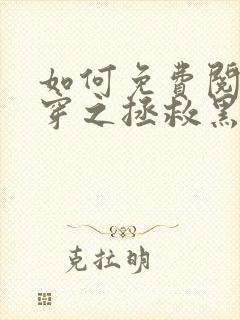 如何免費閱
穿之拯救黑
克拉明